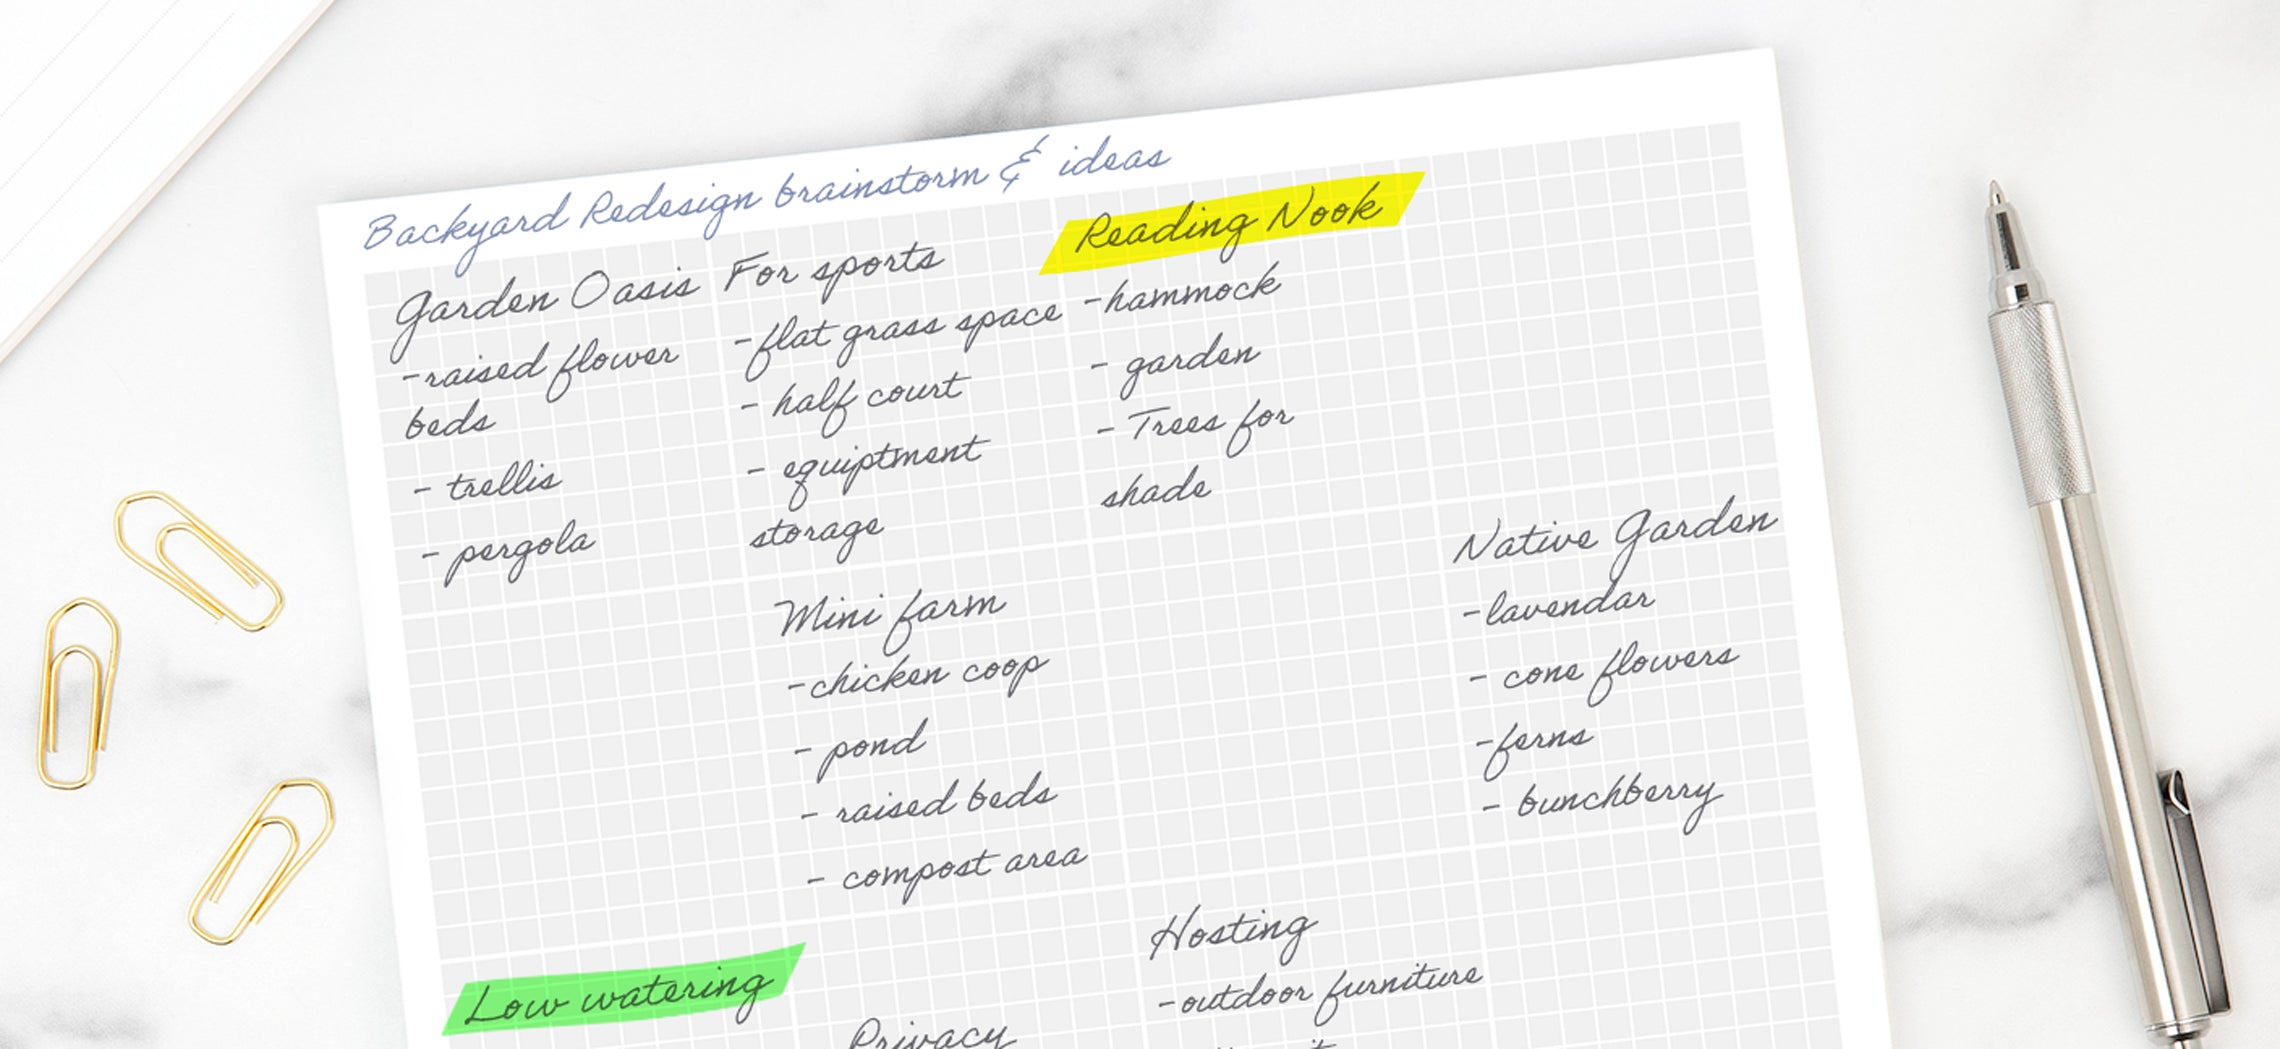 Backyard Redesign brainstorm & ideas
Garden Oasis
-raised flower
beds
- trellis
- pergola
For sports
-flat grass space
- half court
- equiptment
storage
Reading Nook
-hammock
- garden
- Trees for
shade
Mini farm
-chicken coop
- pond
- raised beds
- compost area
Native Garden
-lavendar
- cone flowers
-ferns
- bunchberry
Low watering
Privacy
Hosting
-outdoor furniture